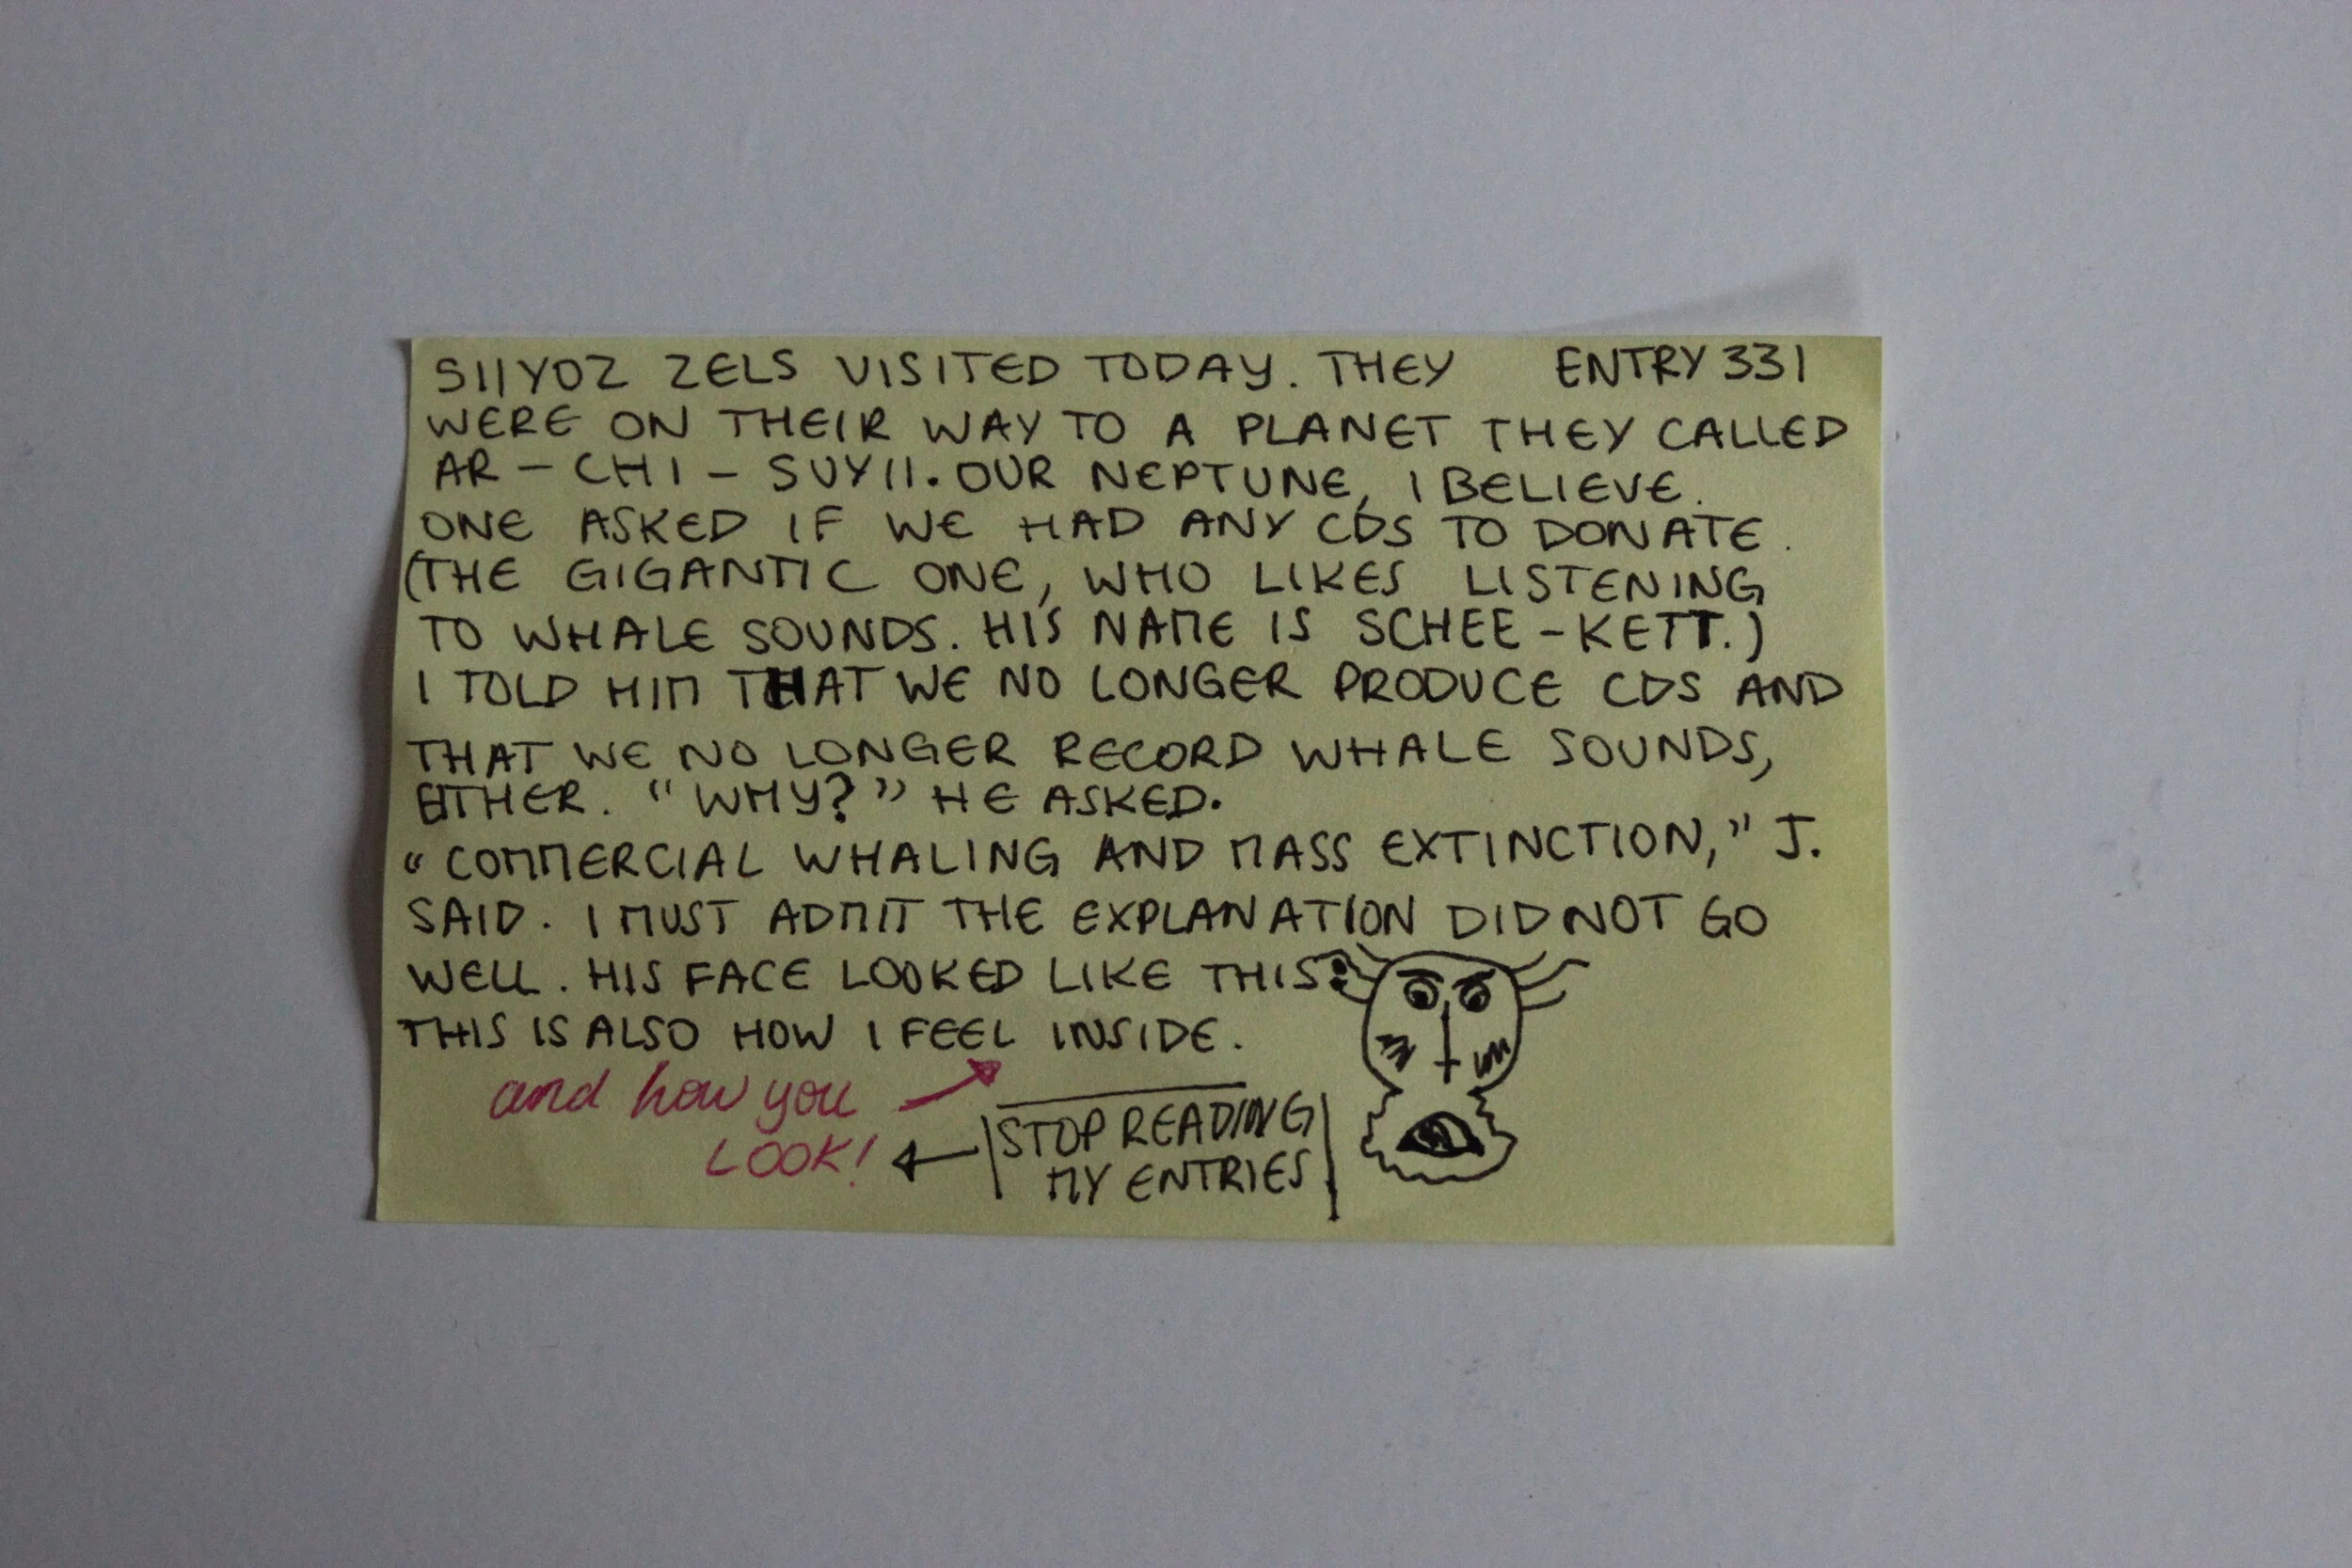 SIIYOZ ZELS VISITED TODAY. THEY ENTRY 331
WERE ON THEIR WAY TO A PLANET THEY CALLED
AR - CHI - SUYII. OUR NEPTUNE, I BELIEVE.
ONE ASKED IF WE HAD ANY CDS TO DONATE.
(THE GIGANTIC ONE, WHO LIKES LISTENING
TO WHALE SOUNDS. HIS NAME IS SCHEE - KETT.)
I TOLD HIM THAT WE NO LONGER PRODUCE CDS AND
THAT WE NO LONGER RECORD WHALE SOUNDS,
EITHER. "WHY?" HE ASKED.
"COMMERCIAL WHALING AND MASS EXTINCTION," J.
SAID. I MUST ADMIT THE EXPLANATION DID NOT GO
WELL. HIS FACE LOOKED LIKE THIS:
THIS IS ALSO HOW I FEEL INSIDE.
and how you
LOOK!
STOP READING
MY ENTRIES